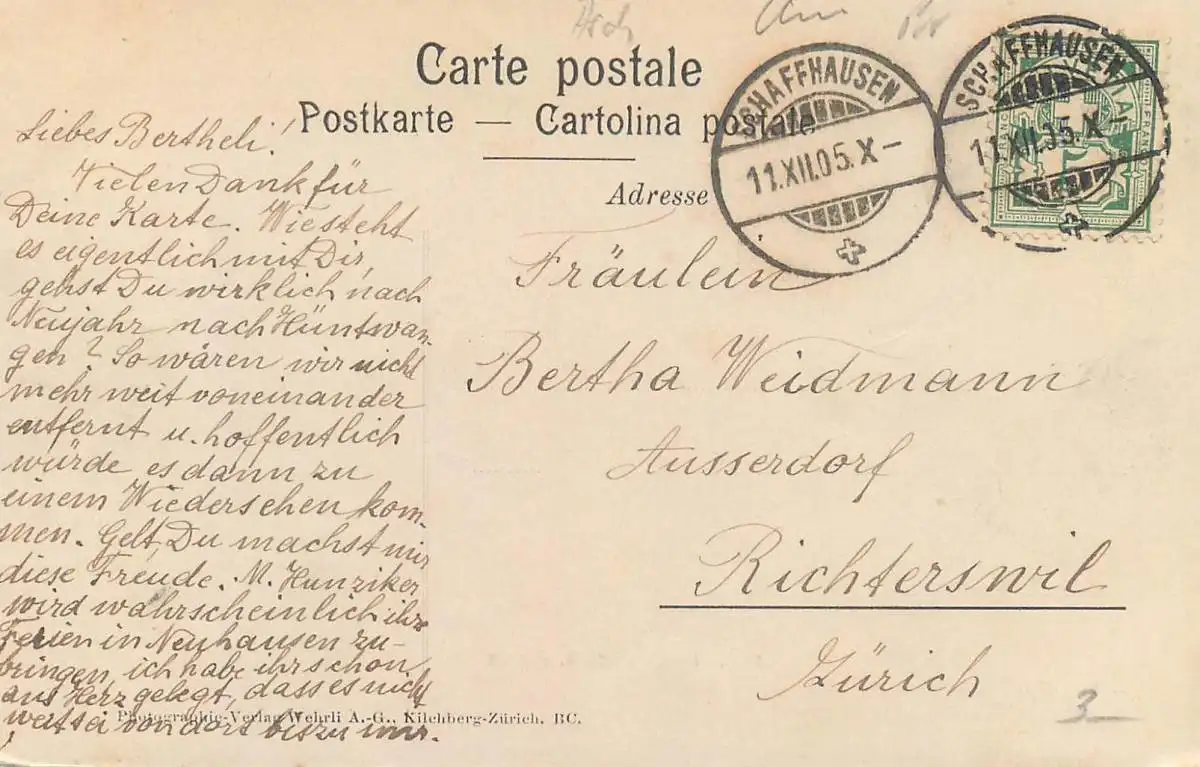 Carte postale
Postkarte — Cartolina postale
Adresse
SCHAFFHAUSEN
11.XII.05.X–
SCHAFFHAUSEN
11.XII.05.X–
FRANCO
Liebes Bertheli!
Vielen Dank für
Deine Karte. Wie steht
es eigentlich mit Dir,
gehst Du wirklich nach
Neujahr nach Hüntwan-
gen? So wären wir nicht
mehr weit voneinander
entfernt u. hoffentlich
würde es dann zu
einem Wiedersehen kom-
men. Gelt, Du machst mir
diese Freude. M. Hunziker
wird wahrscheinlich ihre
Ferien in Neuhausen zu-
bringen, ich habe ihr schon
ans Herz gelegt, dass es nicht
weit sei von dort bis zu mir.
Fräulein
Bertha Weidmann
Ausserdorf
Richterswil
Zürich
Photographie-Verlag Wehrli A.-G., Kilchberg-Zürich. BC.
3–